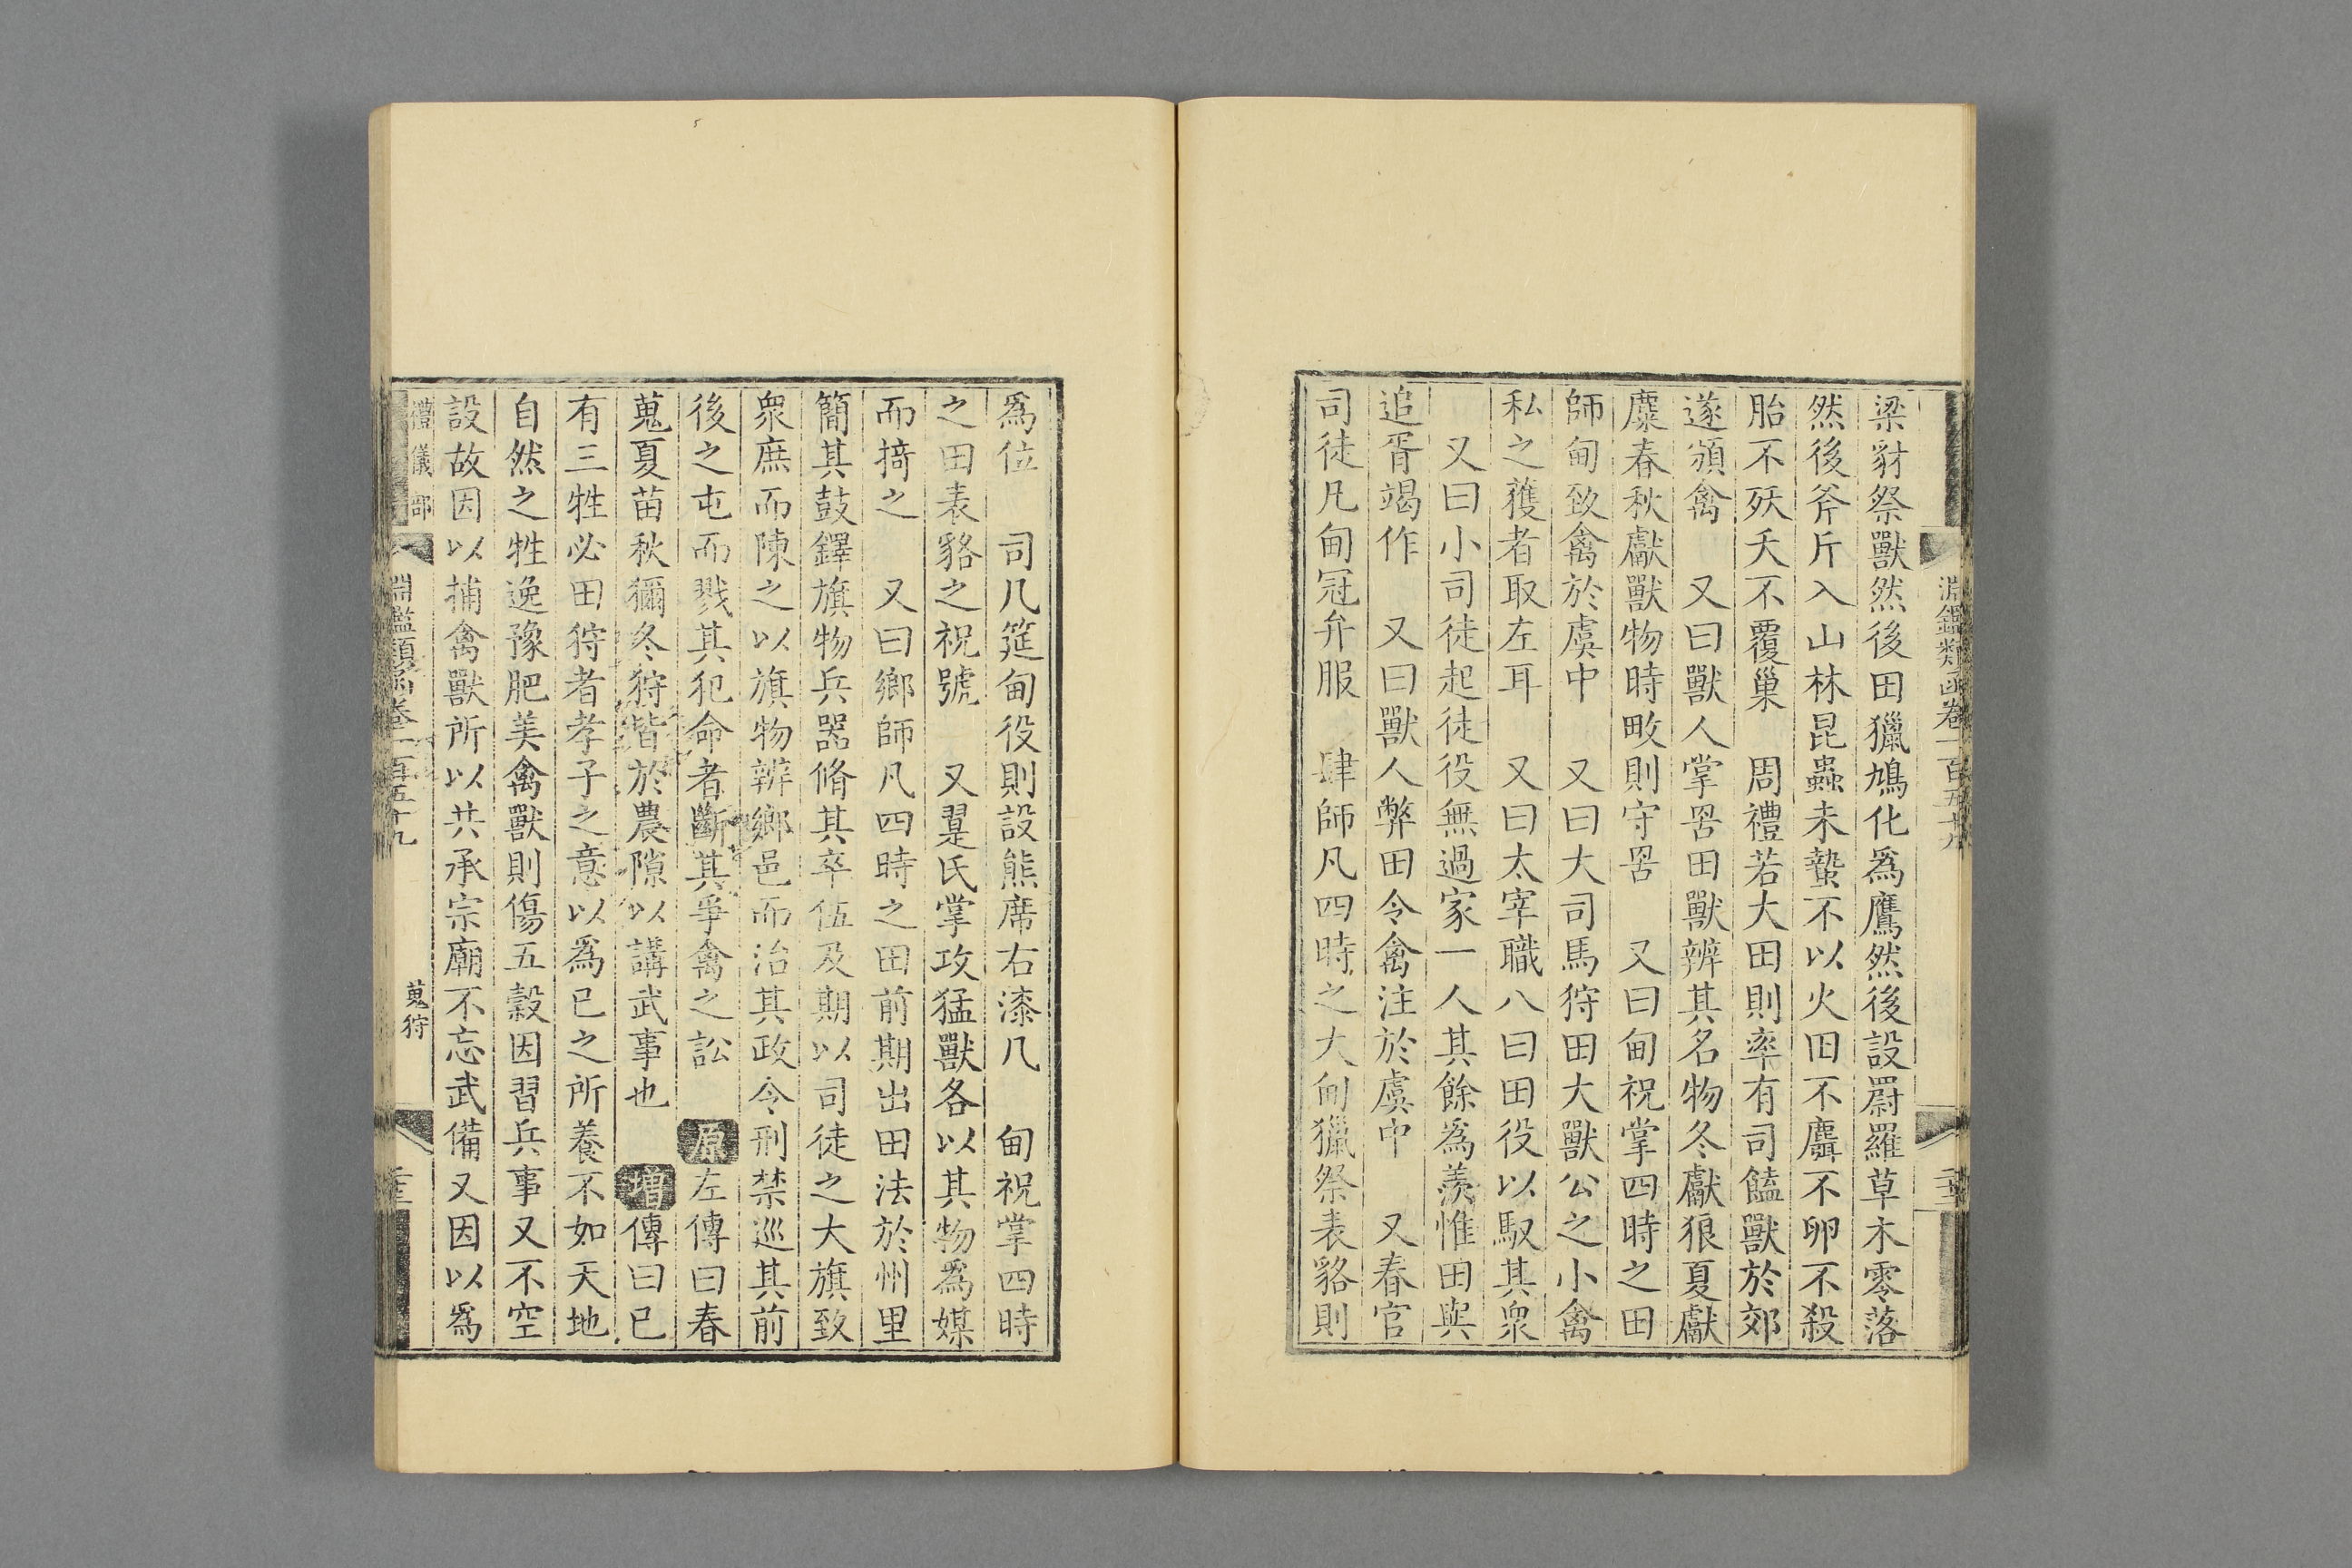 淵鑑類函卷一百五十九
梁豺祭獸然後田獵鳩化爲鷹然後設罻羅草木零落
然後斧斤入山林昆蟲未蟄不以火田不麛不卵不殺
胎不殀夭不覆巢　周禮若大田則率有司饁獸於郊
遂頒禽　又曰獸人掌罟田獸辨其名物冬獻狼夏獻
麋春秋獻獸物時畋則守罟　又曰甸祝掌四時之田
師甸致禽於虞中　又曰大司馬狩田大獸公之小禽
私之獲者取左耳　又曰太宰職八曰田役以馭其衆
又曰小司徒起徒役無過家一人其餘爲羨惟田與
追胥竭作　又曰獸人弊田令禽注於虞中　又春官
司徒凡甸冠弁服　肆師凡四時之大甸獵祭表貉則
爲位　司几筵甸役則設熊席右漆几　甸祝掌四時
之田表貉之祝號　又翨氏掌攻猛獸各以其物爲媒
而掎之　又曰鄉師凡四時之田前期出田法於州里
簡其鼓鐸旗物兵器脩其卒伍及期以司徒之大旗致
衆庶而陳之以旗物辨鄉邑而治其政令刑禁巡其前
後之屯而戮其犯命者斷其爭禽之訟　原左傳曰春
蒐夏苗秋獮冬狩皆於農隙以講武事也　增傳曰已
有三牲必田狩者孝子之意以爲已之所養不如天地
自然之牲逸豫肥美禽獸則傷五穀因習兵事又不空
設故因以捕禽獸所以共承宗廟不忘武備又因以爲
禮儀部
淵鑑類函卷一百五十九
蒐狩